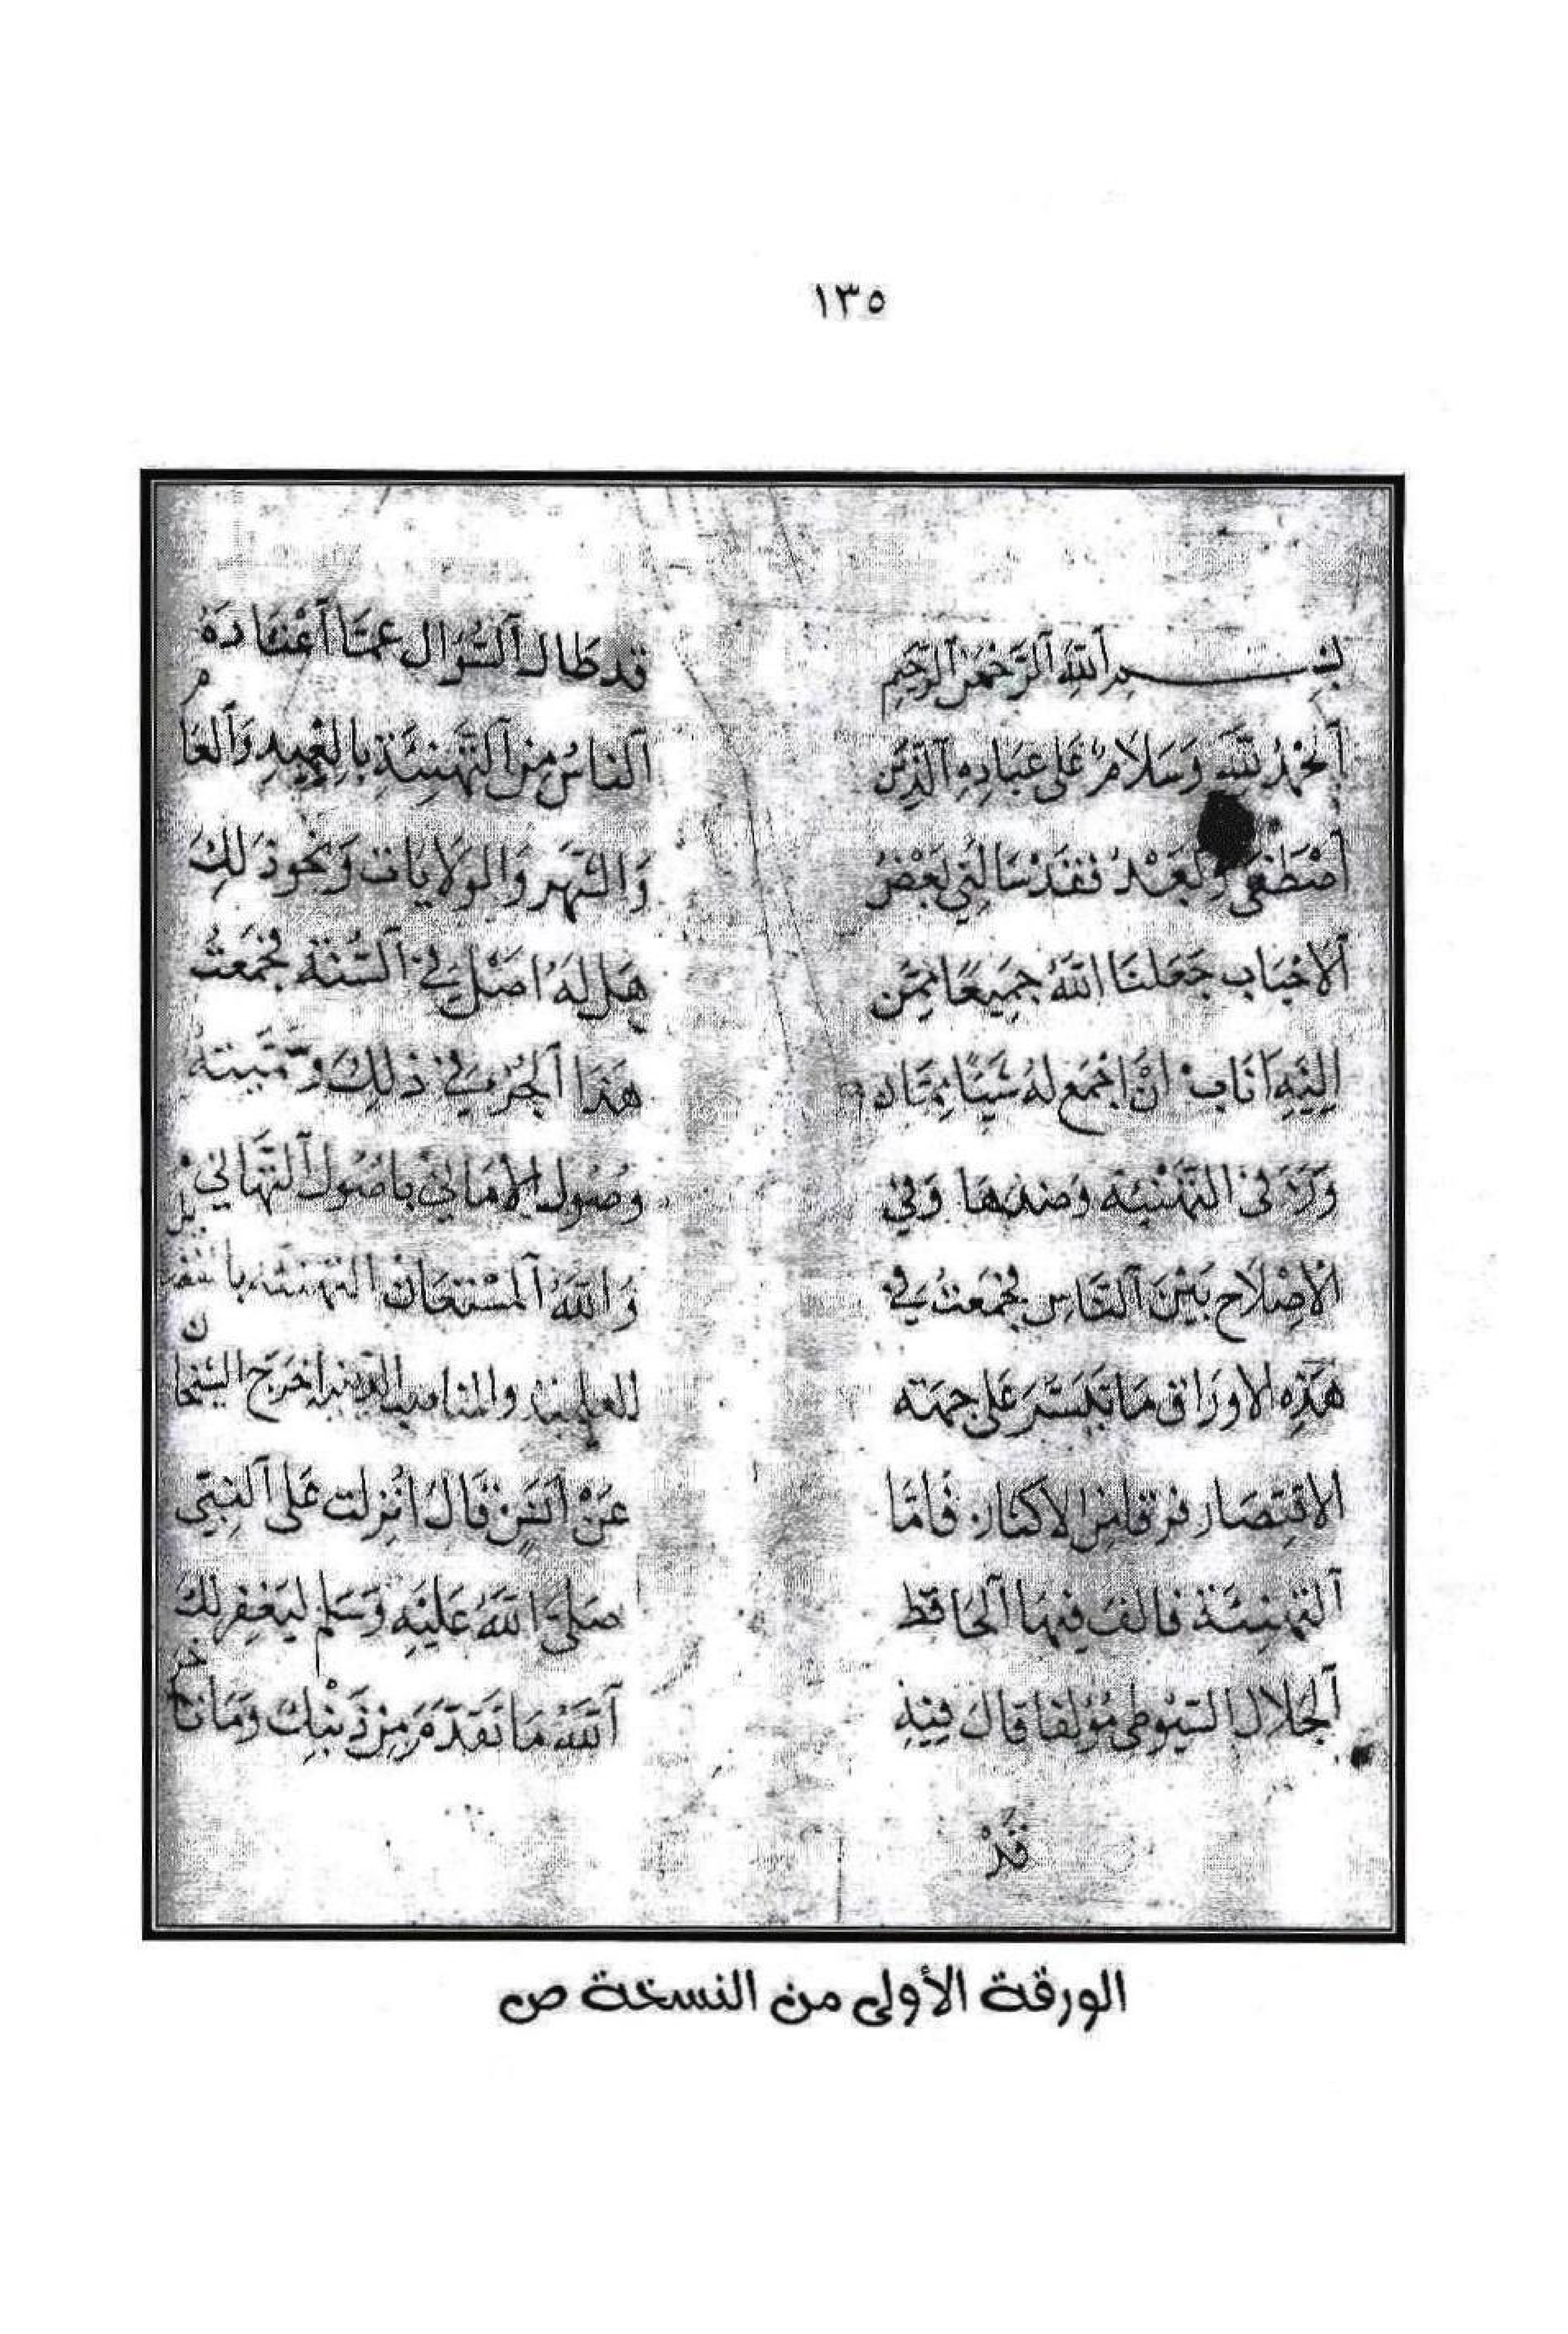 ١٣٥
بسم الله الرحمن الرحيم
الحمد لله وسلام على عباده الذين
اصطفى وبعد فقد سألني بعض
الاحباب جعلنا الله جميعا ممن
اليه اناب ان اجمع له شيئا مما
ورد في التهنيه وضدها وفي
الاصلاح بين الناس فجمعت في
هذه الاوراق ما تيسر على جهته
الاقتصار فرقا من الاكثار فاما
التهنئة فالف فيها الحافظ
الجلال السيوطي مؤلفا قال فيه
قد
قد طال السؤال عما اعتاده
الناس من التهنئة بالعيد والعام
والشهر والولايات ونحو ذلك
هل له اصل في السنة فجمعت
هذا الجزء في ذلك وسميته
وصول الاماني باصول التهاني
والله المستعان التهنئة بالفضايل
العلية والمناصب الدينية اخرج الشيخان
عن انس قال انزلت على النبي
صلى الله عليه وسلم ليغفر لك
الله ما تقدم من ذنبك وما تاخر
الورقة الأولى من النسخة ص